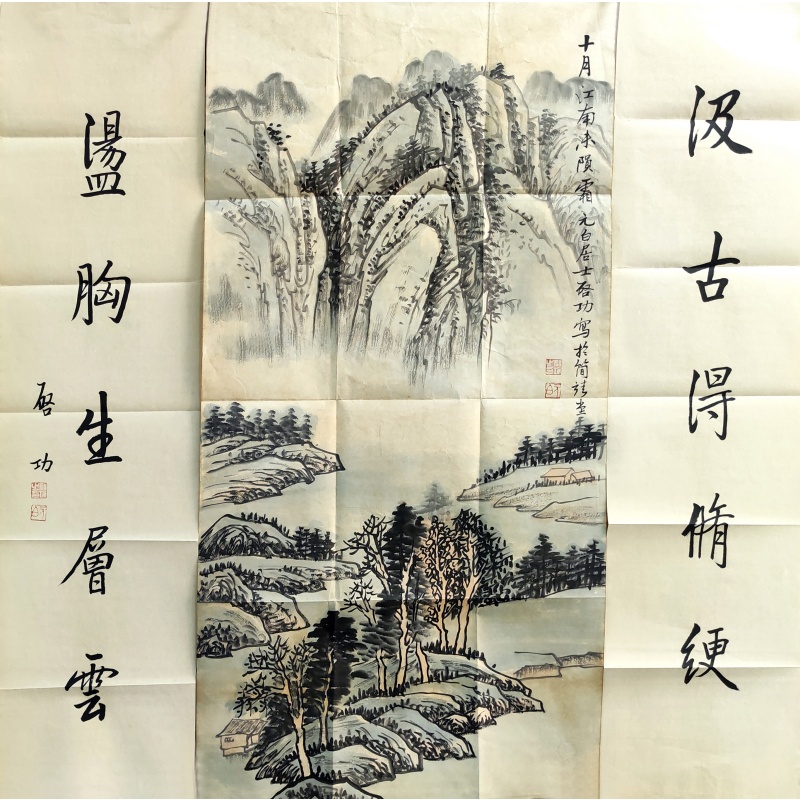 汲古得脩綆
十月江南未隕霜元白居士啓功寫於簡靖堂
盪胸生層雲
啓功